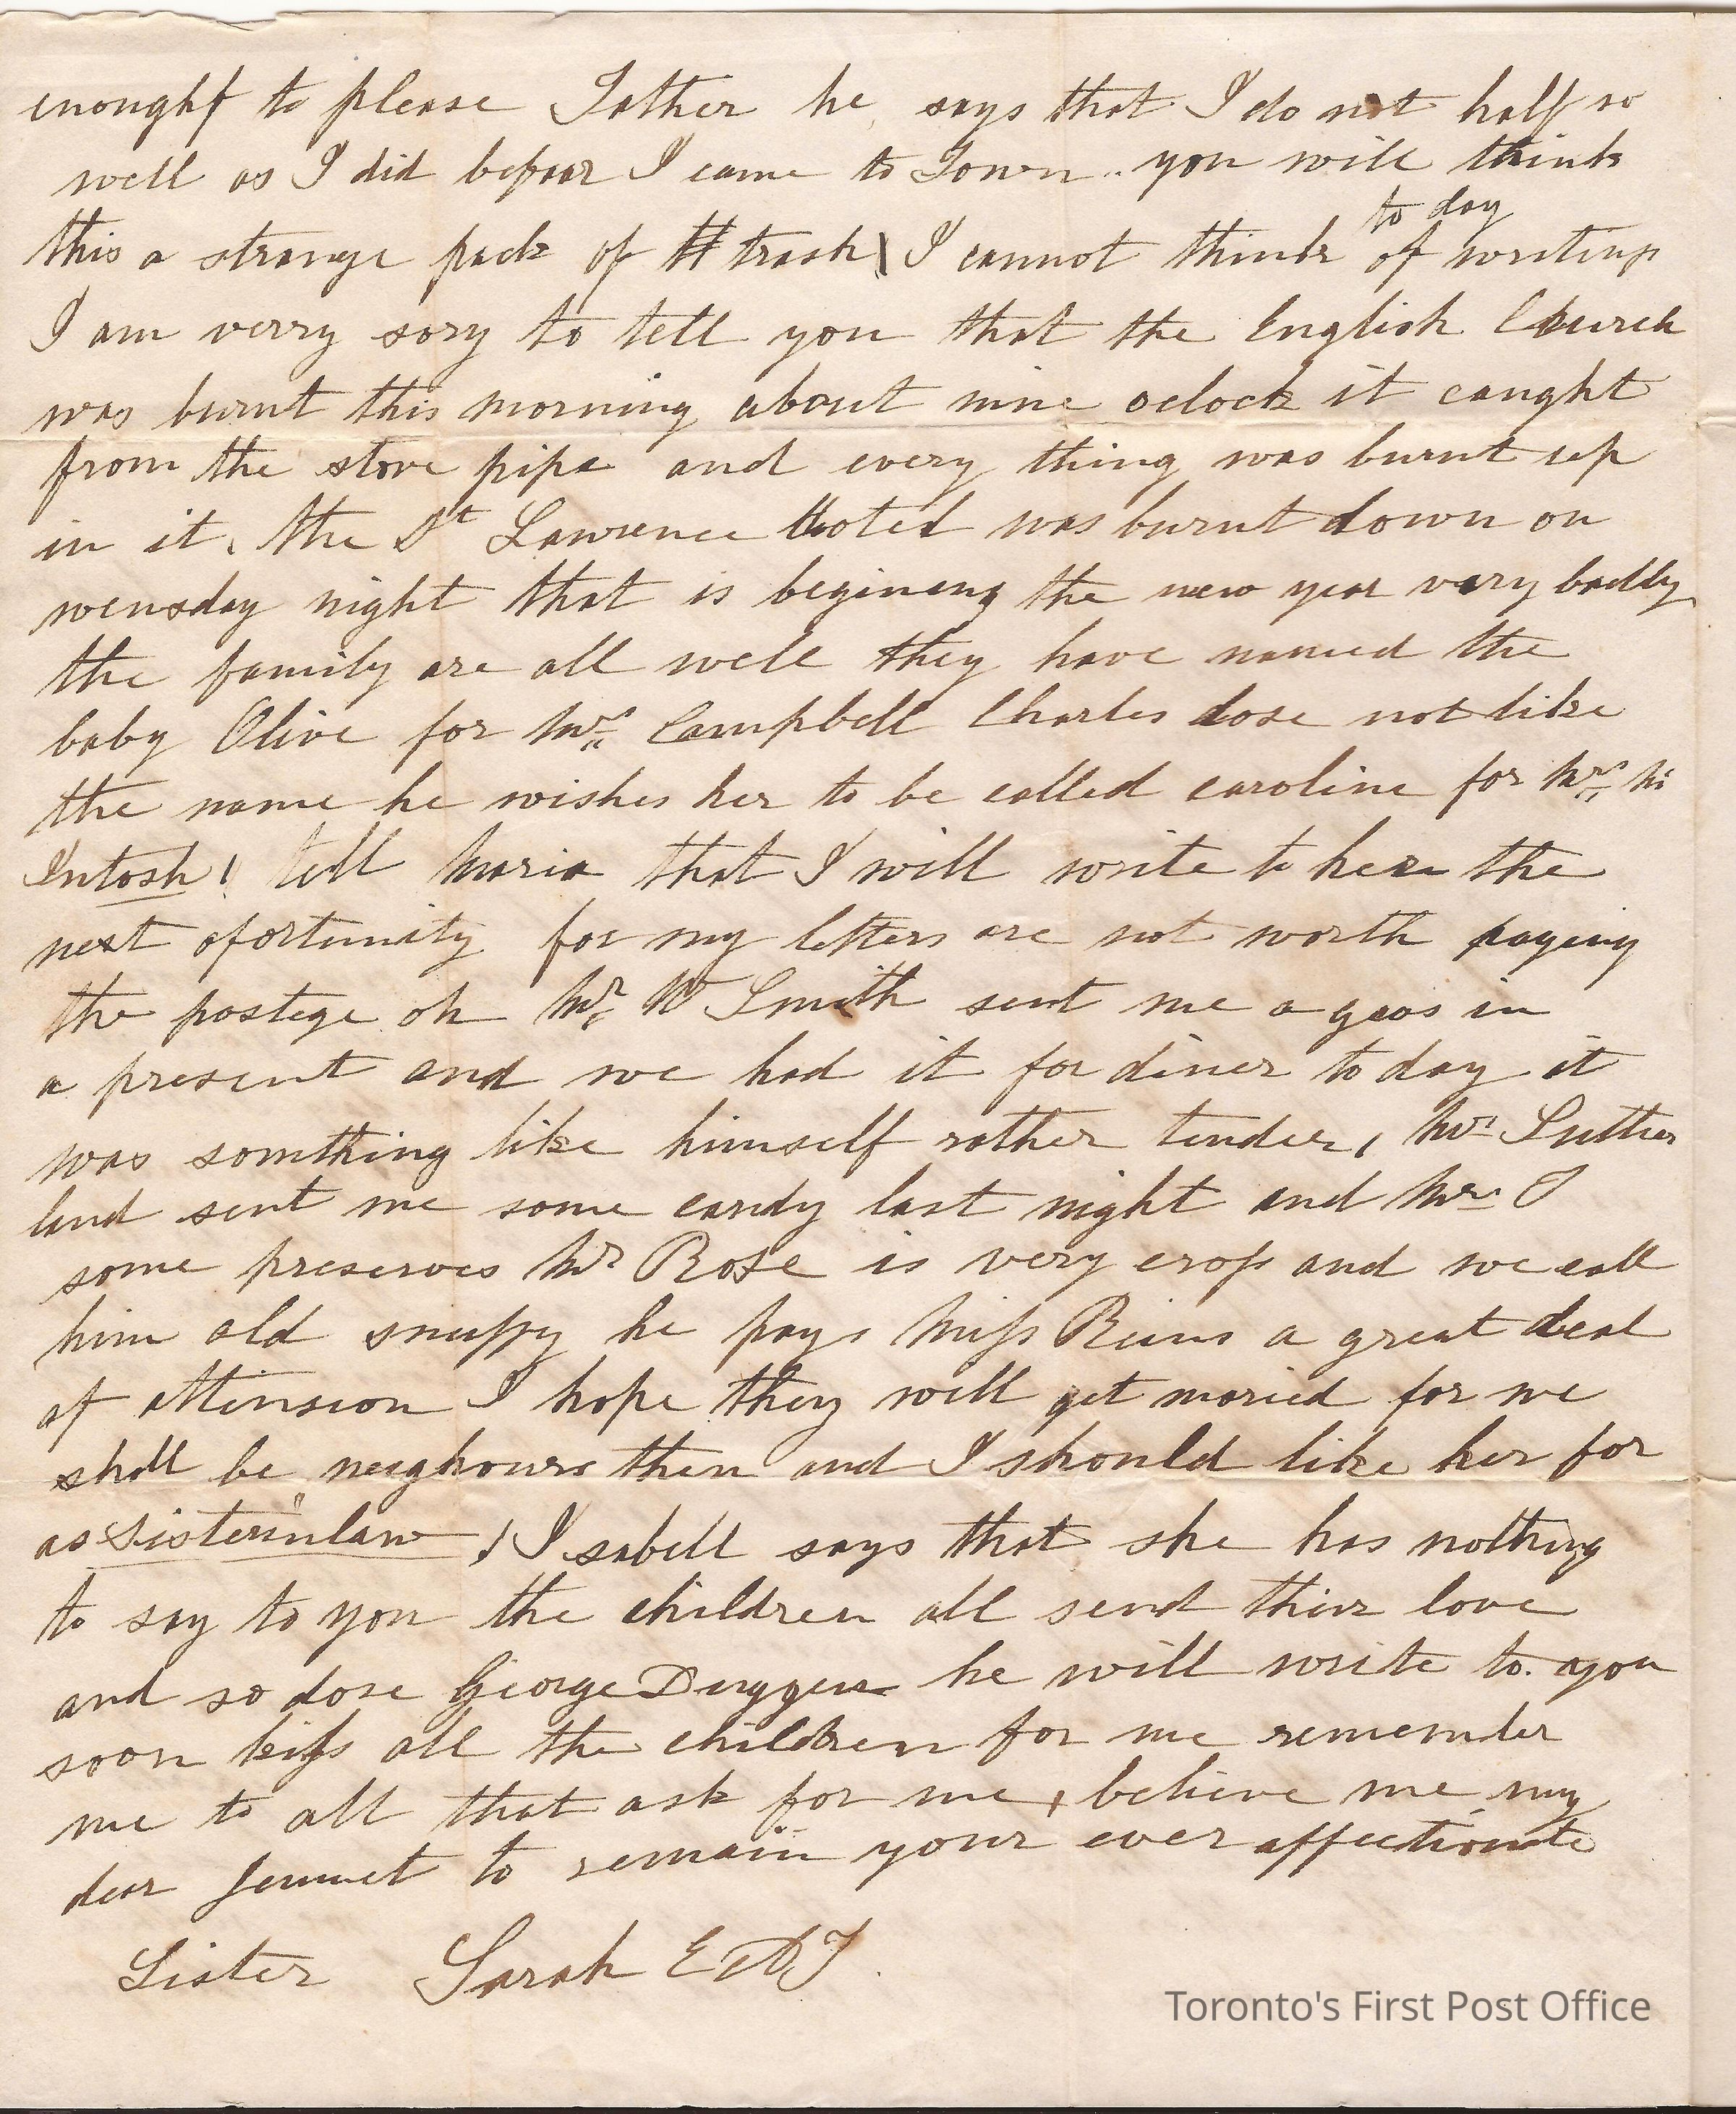 enoughf to please Father he says that I do not half so
well as I did befoar I came to Town .. you will think
to day
this a strange pack of tt trash I cannot think of writing
I am verry sory to tell you that the English Church
was burnt this morning about nine oclock it caught
from the stove pipe and every thing was burnt up
in it, the St Lawrence Hotel was burnt down on
wensday night that is begining the new year very badly
the family are all well they have named the
baby Olive for Mrs Campbell Charles dose not like
the name he wishes her to be called caroline for Mrs Mc
Intosh! tell Maria that I will write to her the
next ofortunity for my letters are not worth paying
the postege oh Mr W Smith sent me a goos in
a present and we had it for diner to day it
was something like himself rather tender, Mr Sutther
land sent me some candy last night and Mrs T
some preserves Mr Rose is very cross and we call
him old snuffy he pays Miss Reins a great deal
of attinsion I hope they will get maried for we
shall be neighours then and I should like her for
as Sisterinlaw ! Isabell says that she has nothing
to say to you the children all send thier love
and so dose George Duggen he will write to you
soon kiss all the children for me remember
me to all that ask for me, believe me my
dear Jennet to remain your ever affectionate
Sister Sarah E
Toronto's First Post Office